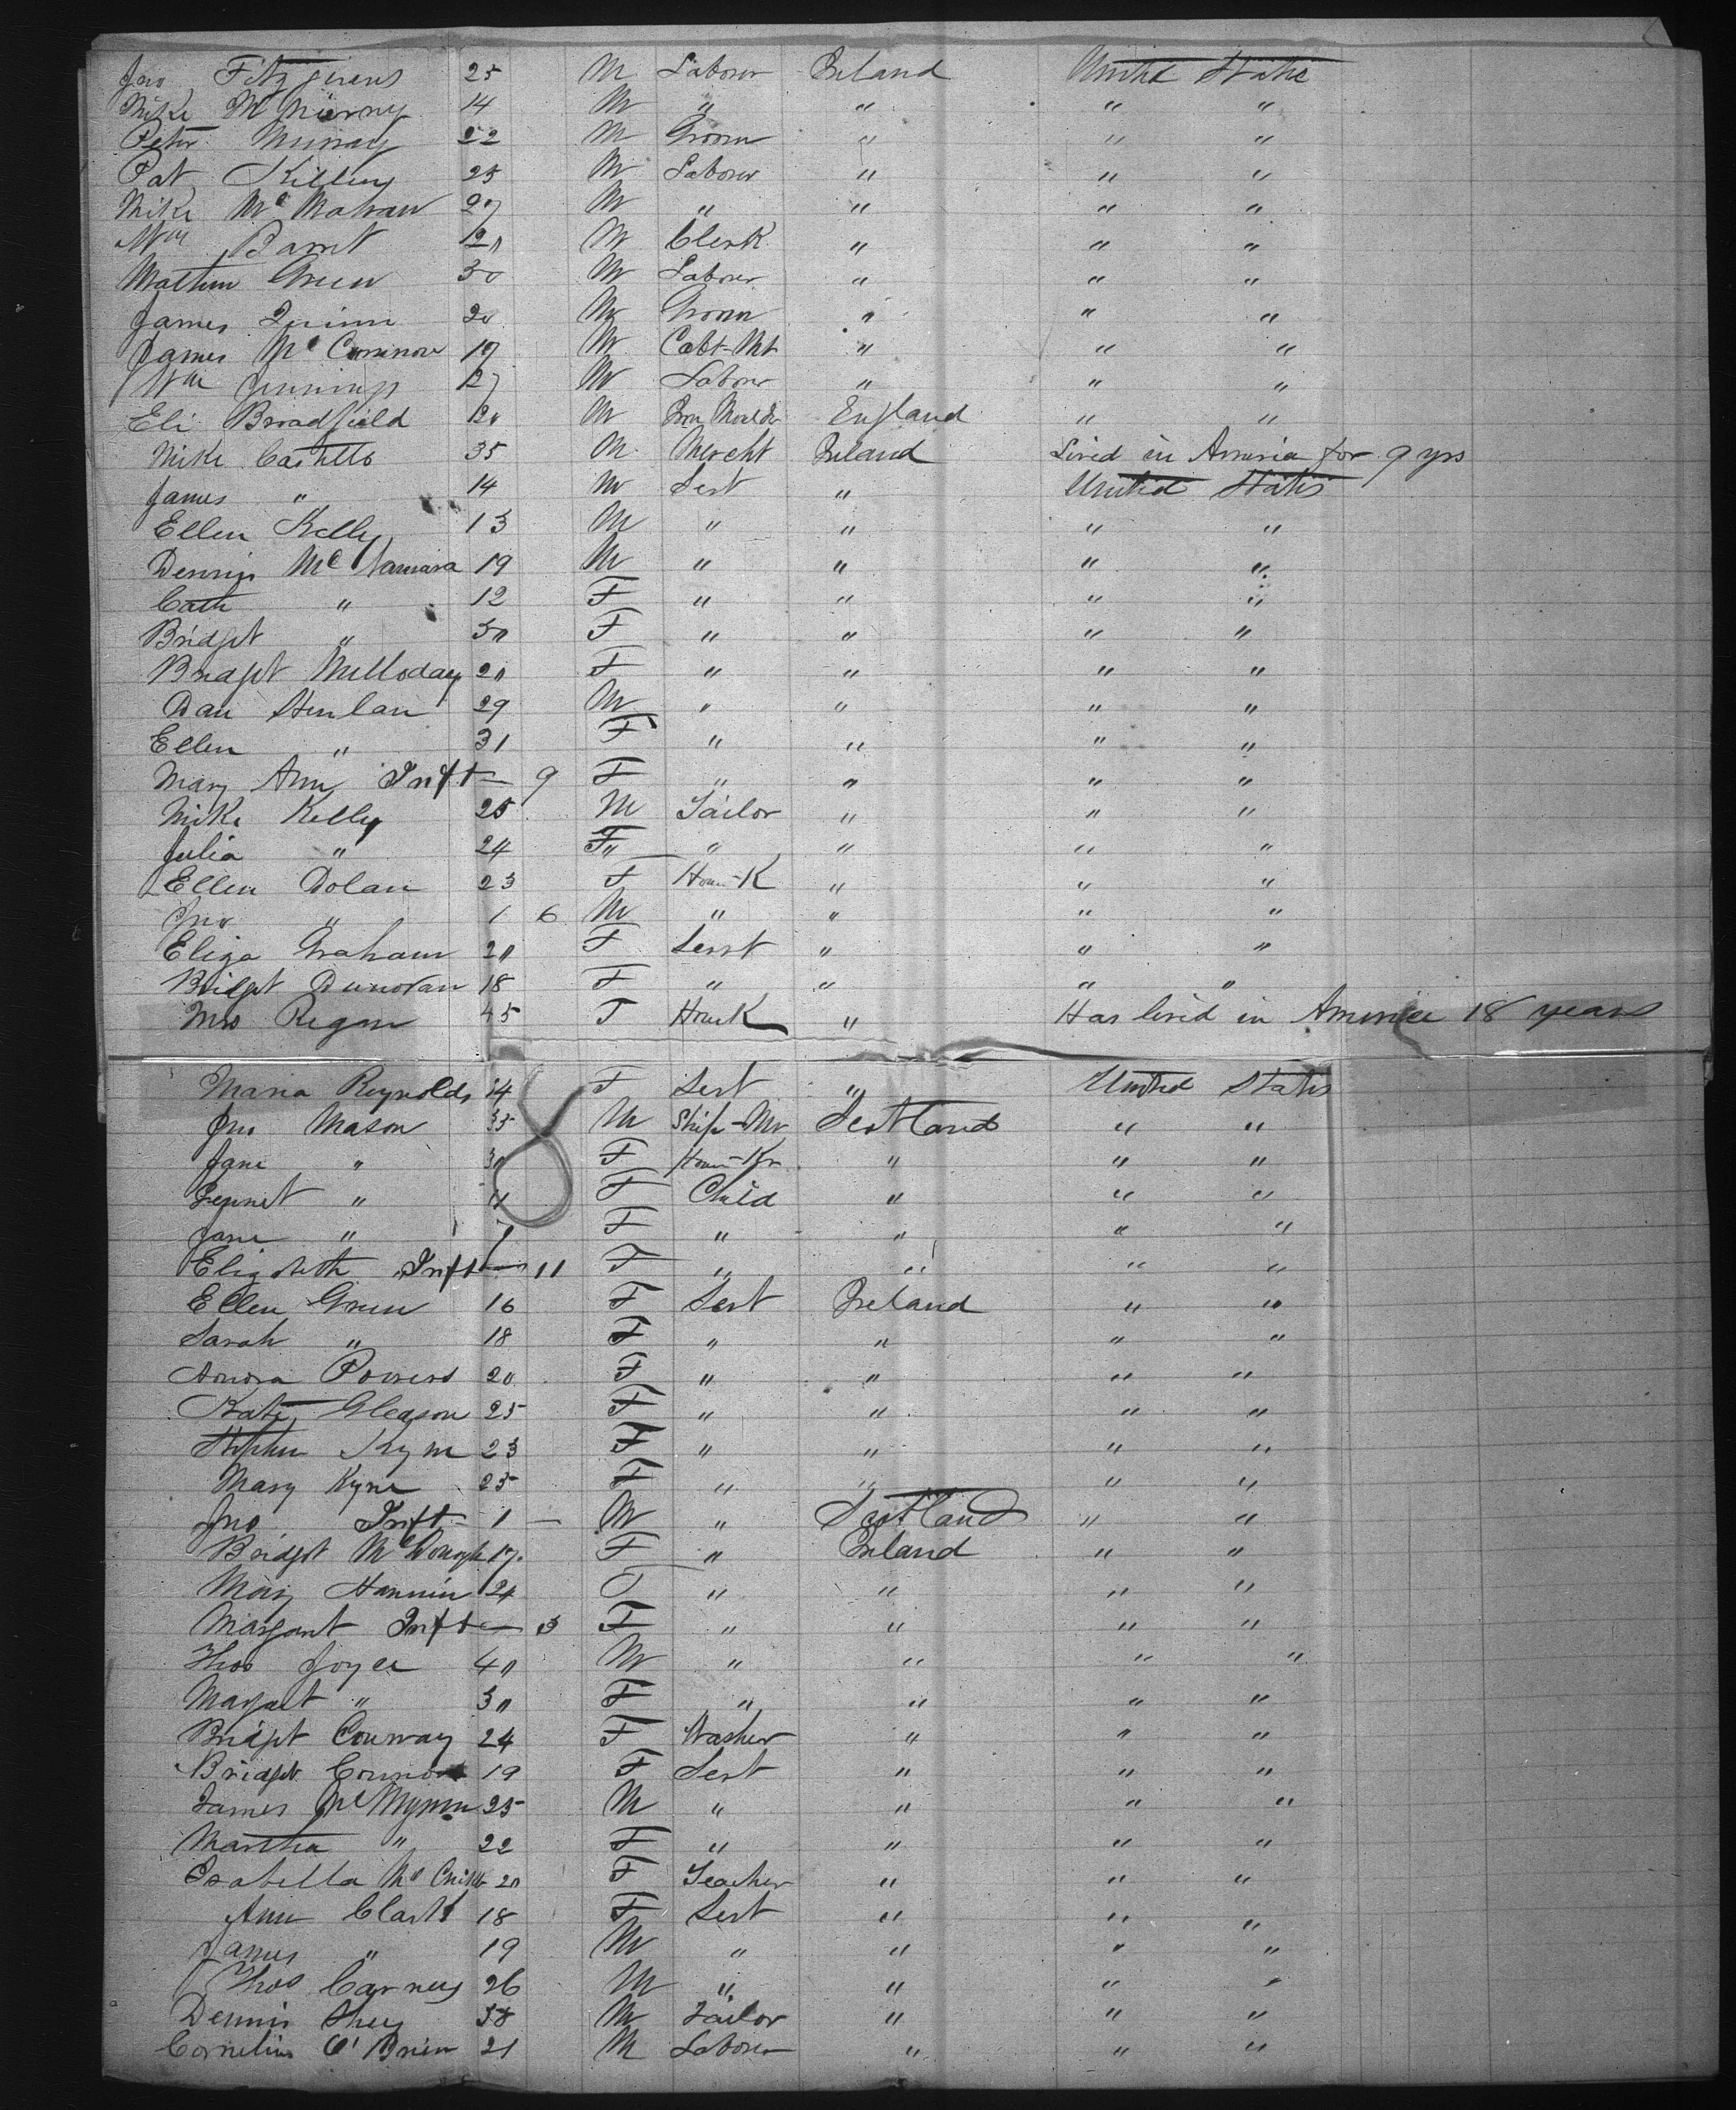 Jno Fitzgerens 25 M Laborer Ireland United States
Mike 14 M " " " "
Peter Murray 22 M Groom " " "
Pat Killing 25 M Laborer " " "
Mike Mc Mahan 27 M " " " "
Wm Barret 20 M Clerk " " "
Mathew Green 30 M Laborer " " "
James Quinn 20 M Groom " " "
James Mc 19 M Cabt-Mk " " "
Wm Jennings 27 M Laborer " " "
Eli Broadfield 20 M Iron Moulder England " "
Mike Castello 35 M Mercht Ireland Lived in America for 9 yrs
James " 14 M Sert " United States
Ellen Kelly 13 M " " " "
Dennis Mc Namara 19 M " " " "
Cath " 12 F " " " "
Bridget " 30 F " " " "
Bridget Mulloday 20 F " " " "
Dan Henlan 29 M " " " "
Ellen " 31 F " " " "
Mary Ann Inft — 9 F " " " "
Mike Kelly 25 M Tailor " " "
Julia " 24 F " " " "
Ellen Dolan 23 F House-K " " "
Jno " 1 6 M " " " "
Eliza Graham 20 F Servt " " "
Bridget Dunovan 18 F " " " "
Mrs Regan 45 F HouseK " Has lived in America 18 years
Maria Reynolds 34 F Sert " United States
Jno Mason 35 M Ship-Mr Scotland " "
Jane " 30 F House-Kr " " "
Jennet " 11 F Child " " "
Jane " 7 F " " " "
Elizabeth Inft — 11 F " " " "
Ellen Green 16 F Sert Ireland " "
Sarah " 18 F " " " "
Honora Powers 20 F " " " "
Kate Gleason 25 F " " " "
Stephen Kyne 23 F " " " "
Mary Kyne 25 F " " " "
Jno Inft 1 — M " Scotland " "
Bridget McDonogh 17 F " Ireland " "
Mary Hannin 24 F " " " "
Margaret Inft — 3 F " " " "
Thos Joyce 40 M " " " "
Margaret " 30 F " " " "
Bridget Conway 24 F Washer " " "
Bridget Connor 19 F Sert " " "
James 25 M " " " "
Martha " 22 F " " " "
Isabella Mc 20 F Teacher " " "
Ann Clark 18 F Sert " " "
James " 19 M " " " "
Thos Carney 26 M " " " "
Dennis Shey 38 M Tailor " " "
Cornelius O'Brien 21 M Laborer " " "
8